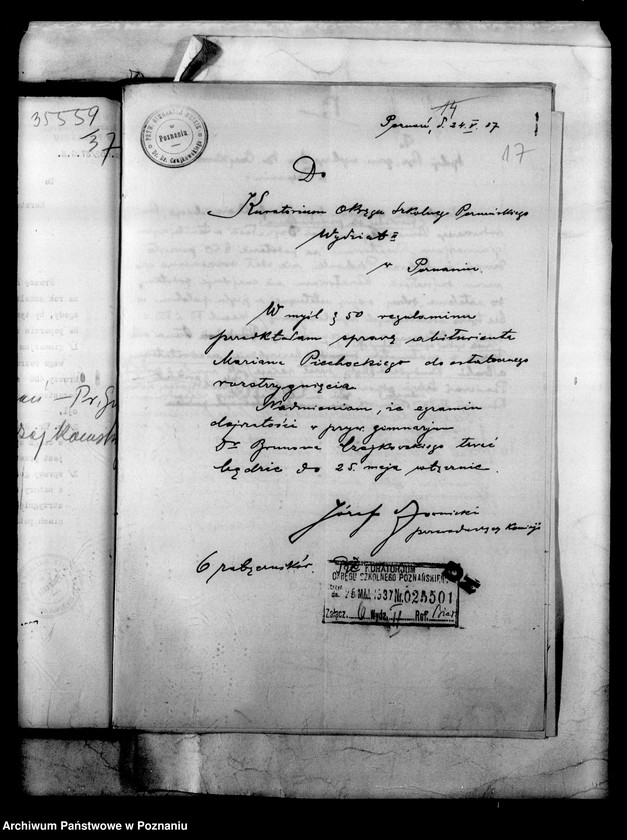 35559
37
PRYW. GIMNAZJUM MĘSKIE
w
Poznaniu
Dr. Br. Czajkowskiego
14
Poznań, d. 24. V. 37
17
Do
Kuratorium Okręgu Szkolnego Poznańskiego
Wydział II
w Poznaniu.
W myśl § 50 regulaminu
przedkładam sprawę abiturienta
Mariana Piechockiego do ostatecznego
rozstrzygnięcia.
Nadmieniam, że egzamin
dojrzałości w pryw. gimnazjum
Dr Brunona Czajkowskiego trwać
będzie do 25. maja włącznie.
Józef
przewodniczący Komisji
6 załączników.
KURATORJUM
OKRĘGU SZKOLNEGO POZNAŃSKIEGO
dn. 26 MAJ 1937 Nr. 025501
Załącz. 6 Wydz. II Ref.
Archiwum Państwowe w Poznaniu